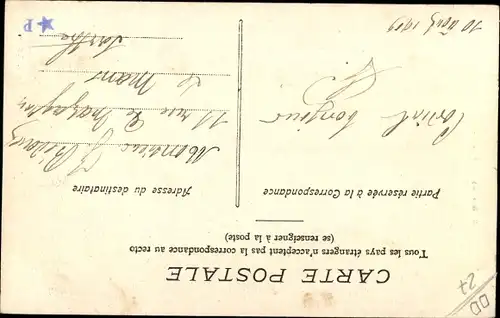 CARTE POSTALE
Tous les pays étrangers n'acceptent pas la correspondance au recto
(se renseigner à la poste)
Partie réservée à la Correspondance
Adresse du destinataire
Cordial bonjour
10 Août 1919
Monsieur
11 rue de
Le Mans
Sarthe
P
DD
27